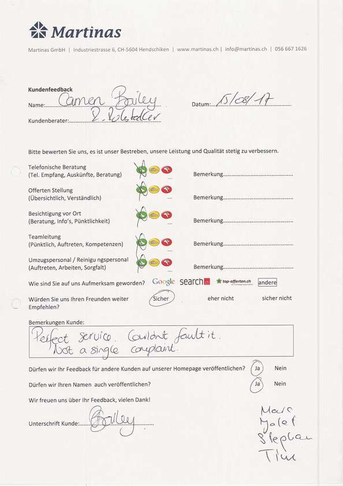 Martinas
Martinas GmbH | Industriestrasse 6, CH-5604 Hendschiken | www.martinas.ch | info@martinas.ch | 056 667 1626
Kundenfeedback
Name: Camen Bailey Datum: 15/08/17
Kundenberater:
Bitte bewerten Sie uns, es ist unser Bestreben, unsere Leistung und Qualität stetig zu verbessern.
Telefonische Beratung
(Tel. Empfang, Auskünfte, Beratung) Bemerkung
Offerten Stellung
(Übersichtlich, Verständlich) Bemerkung
Besichtigung vor Ort
(Beratung, Info's, Pünktlichkeit) Bemerkung
Teamleitung
(Pünktlich, Auftreten, Kompetenzen) Bemerkung
Umzugspersonal / Reinigungspersonal
(Auftreten, Arbeiten, Sorgfalt) Bemerkung
Wie sind Sie auf uns Aufmerksam geworden? Google search.ch top-offerten.ch andere
Würden Sie uns Ihren Freunden weiter Sicher eher nicht sicher nicht
Empfehlen?
Bemerkungen Kunde:
Perfect service. Couldnt fault it.
Not a single complaint.
Dürfen wir Ihr Feedback für andere Kunden auf unserer Homepage veröffentlichen? Ja Nein
Dürfen wir Ihren Namen auch veröffentlichen? Ja Nein
Wir freuen uns über Ihr Feedback, vielen Dank!
Unterschrift Kunde: Bailey
Marc
Stephan
Tim